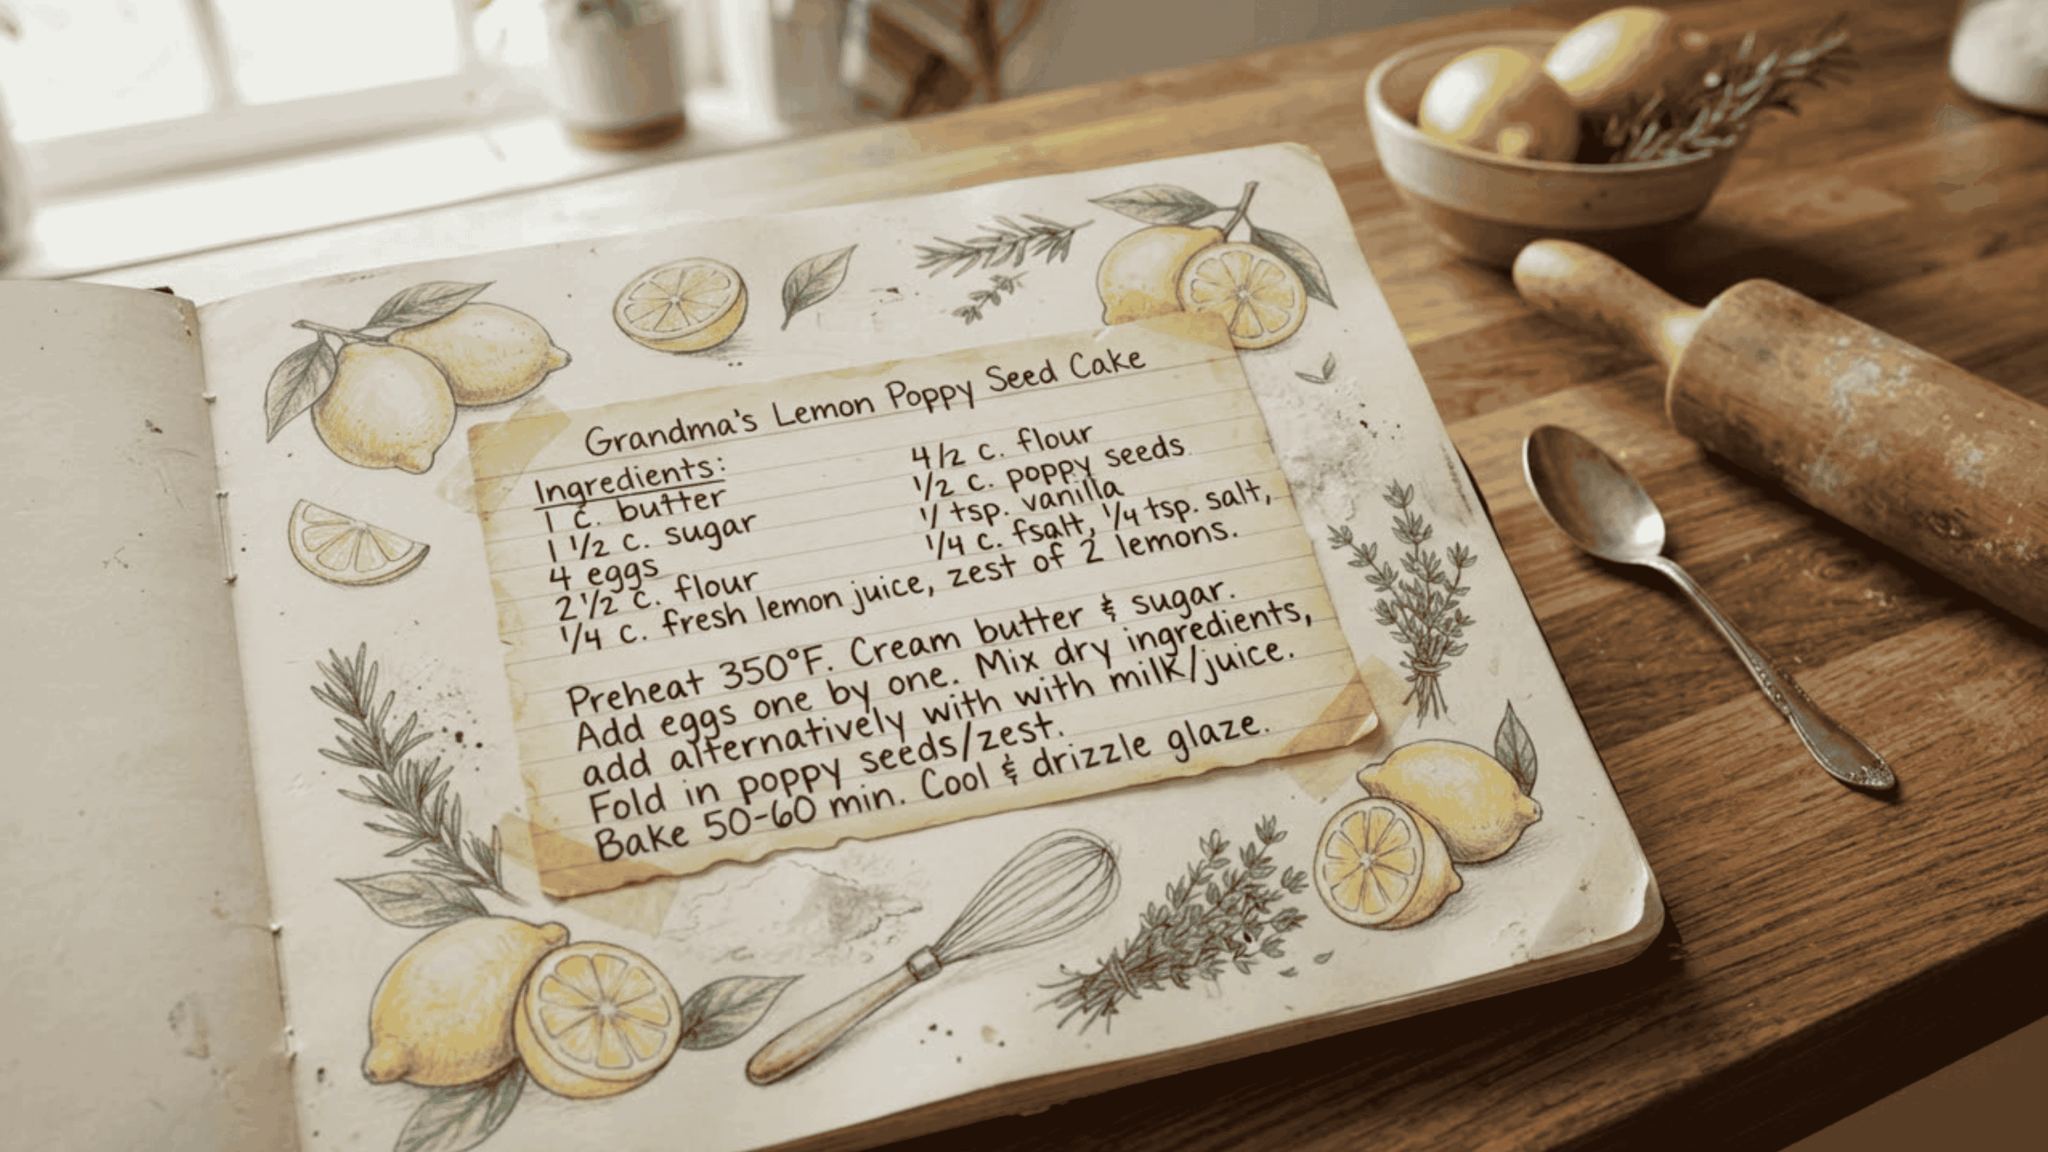 Grandma's Lemon Poppy Seed Cake
Ingredients:
1 c. butter
1 1/2 c. sugar
4 eggs
2 1/2 c. flour
4 1/2 c. flour
1/2 c. poppy seeds
1/ tsp. vanilla
1/4 c. fsalt, 1/4 tsp. salt,
1/4 c. fresh lemon juice, zest of 2 lemons.
Preheat 350°F. Cream butter & sugar.
Add eggs one by one. Mix dry ingredients,
add alternatively with with milk/juice.
Fold in poppy seeds/zest.
Bake 50-60 min. Cool & drizzle glaze.